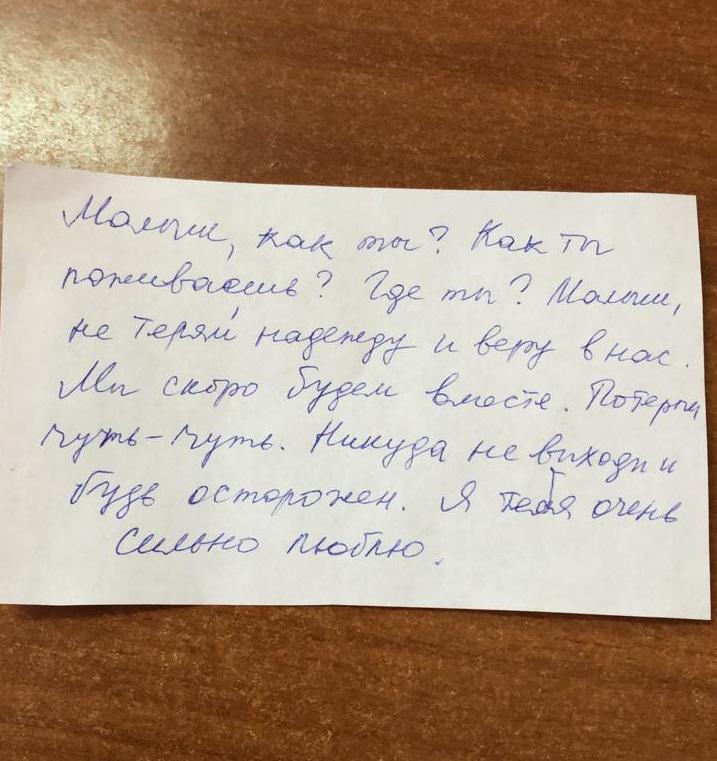 Малыш, как ты? Как ты
поживаешь? Где ты? Малыш,
не теряй надежду и веру в нас.
Мы скоро будем вместе. Потерпи
чуть-чуть. Никуда не выходи и
будь осторожен. Я тебя очень
сильно люблю.